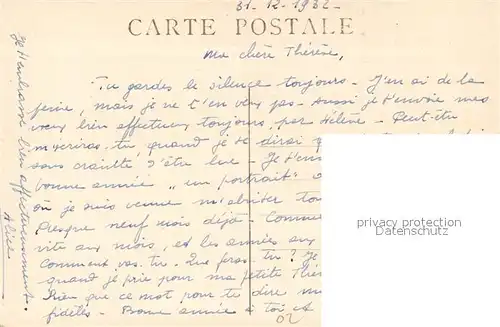 31-12-1932-
CARTE POSTALE
Ma chère Thérèse,
Tu gardes le silence toujours - J'en ai de la
peine, mais je ne t'en veux pas - aussi je t'envoie mes
vœux bien affectueux toujours par Hélène - Peut-être
m'écriras-tu quand je te dirai
sans crainte d'être lue - Je t'en
bonne année "un portrait"
où je suis venue m'abriter
Presque neuf mois déjà - Comme
vite aux mois, et les années aux
comment vas-tu - Que fais-tu? Je
quand je prie pour ma petite Thér
Rien que ce mot pour te dire
fidèles - Bonne année à toi et
Je t'embrasse bien affectueusement.
Alice
02
privacy protection
Datenschutz